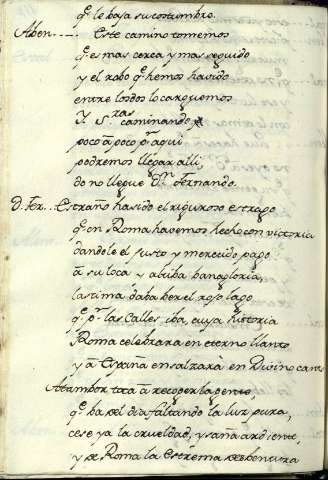 qe. le baja su costumbre.
Aben---- Este camino tomemos
qe. es mas cerca y mas seguido
y el robo qe. hemos havido
entre los dos lo carguemos
Y Sras. caminando
poco â poco pr. aqui
podremos llegar alli,
do no llegue Dn. Fernando.
D. Fer... Estraño ha sido el riguroso estrago
qe. en Roma havemos hecho con victoria
dandole el justo y merecido pago
â su loca y altiba banagloria,
lastima daba ber el rojo lago
qe. pr. las Calles iba, cuya historia
Roma celebrara en eterno llanto
y â España ensalzarà en Divino canto
Atambor toca â recoger la gente,
qe. ba del dia faltando la luz pura,
cese ya la crueldad, y saña ardiente,
y de Roma la Estrema desbentura